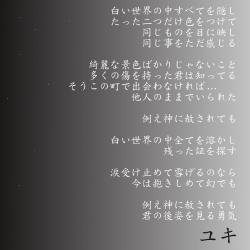 白い世界の中すべてを隠し
たった二つだけ色をつけて
同じものを目に映し
同じ事をただ感じる
綺麗な景色ばかりじゃないこと
多くの傷を持った君は知ってる
そうこの町で出会わなければ…
他人のままでいられた
例え神に赦されても
白い世界の中全てを溶かし
残った証を探す
涙受け止めて雪げるのなら
今は抱きしめて幻でも
例え神に赦されても
君の後姿を見る勇気
ユキ